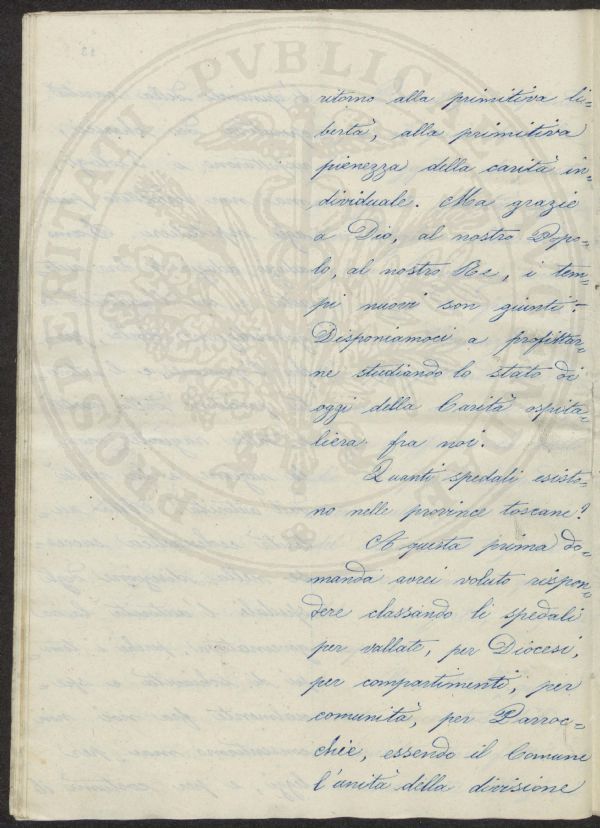 PROSPERITATI PVBLICAE AVGENDAE
ritorno alla primitiva li=
bertà, alla primitiva
pienezza della carità in=
dividuale. Ma grazie
a Dio, al nostro Popo=
lo, al nostro Re, i tem=
pi nuovi son giunti:
Disponiamoci a profittar=
ne studiando lo stato di
oggi della Carità ospita=
liera fra noi.
Quanti spedali esisto=
no nelle province toscane?
A questa prima do=
manda avrei voluto rispon=
dere classando li spedali
per vallate, per Diocesi,
per compartimenti, per
comunità, per Parroc=
chie, essendo il Comune
l'unità della divisione